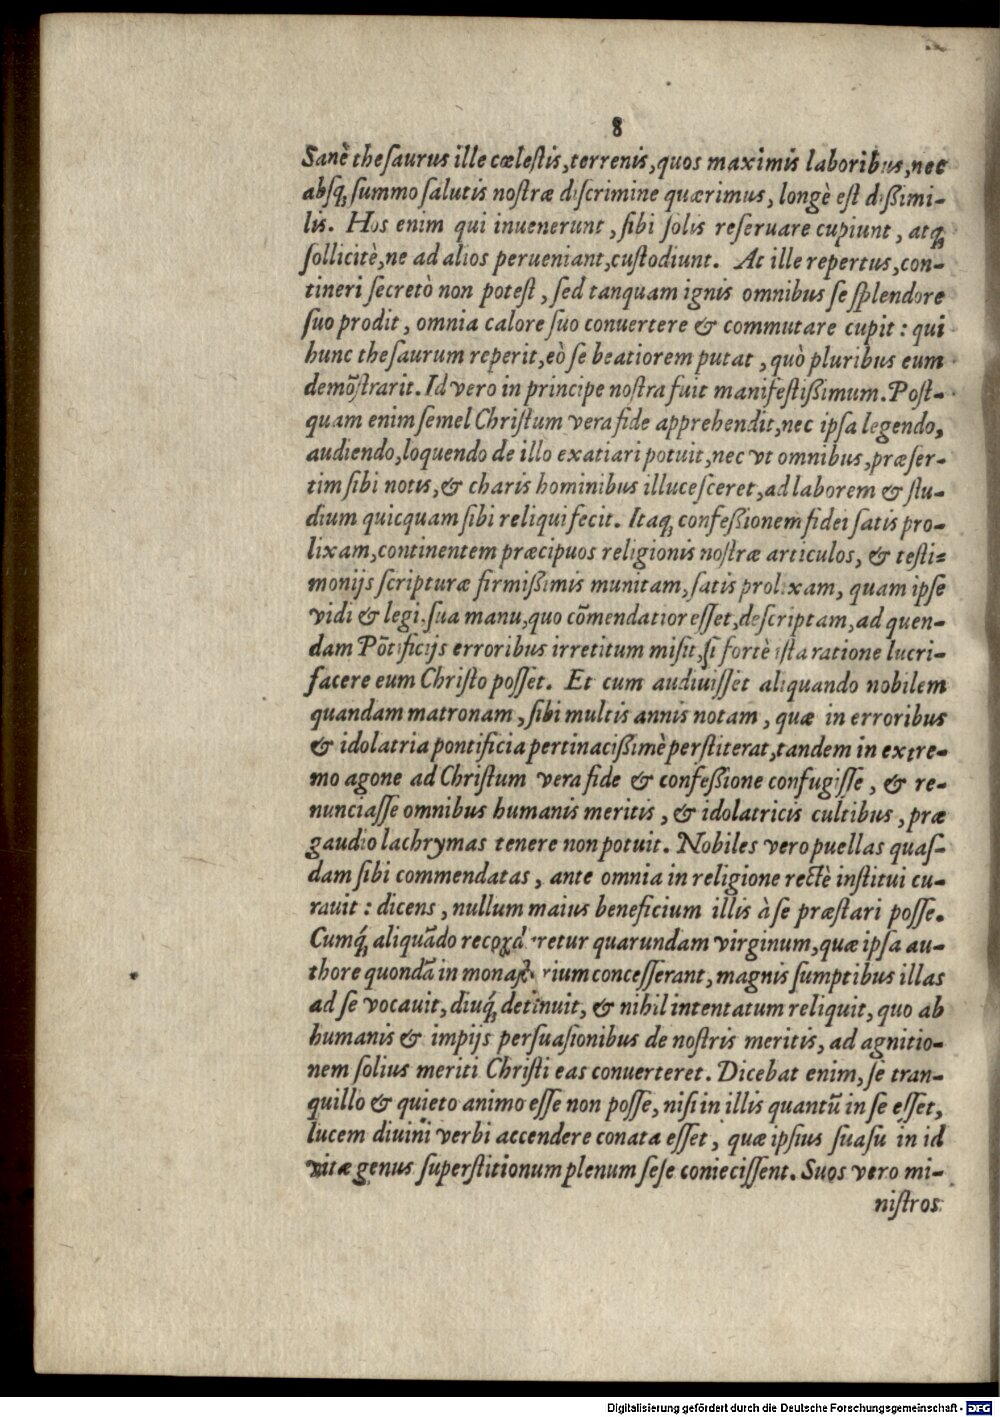 8
Sanè theſaurus ille cæleſtis, terrenis, quos maximis laboribus, nec
abſq́; ſummo ſalutis noſtræ diſcrimine quærimus, longè eſt dißimi-
lis. Hos enim qui inuenerunt, ſibi ſolis reſeruare cupiunt, atq́;
ſollicitè, ne ad alios perueniant, cuſtodiunt. At ille repertus, con-
tineri ſecretò non poteſt, ſed tanquam ignis omnibus ſe ſplendore
ſuo prodit, omnia calore ſuo conuertere & commutare cupit: qui
hunc theſaurum reperit, eò ſe beatiorem putat, quò pluribus eum
demõſtrarit. Id vero in principe noſtra fuit manifeſtißimum. Poſt-
quam enim ſemel Chriſtum vera fide apprehendit, nec ipſa legendo,
audiendo, loquendo de illo exatiari potuit, nec vt omnibus, præſer-
tim ſibi notis, & charis hominibus illuceſceret, ad laborem & ſtu-
dium quicquam ſibi reliqui fecit. Itaq́; confeßionem fidei ſatis pro-
lixam, continentem præcipuos religionis noſtræ articulos, & teſti-
monijs ſcripturæ firmißimis munitam, ſatis prolixam, quam ipſe
vidi & legi. ſua manu, quo cõmendatior eſſet, deſcriptam, ad quen-
dam Põtificijs erroribus irretitum miſit, ſi fortè iſta ratione lucri-
facere eum Chriſto poſſet. Et cum audiuiſſet aliquando nobilem
quandam matronam, ſibi multis annis notam, quæ in erroribus
& idolatria pontificia pertinacißimè perſtiterat, tandem in extre-
mo agone ad Chriſtum vera fide & confeßione confugiſſe, & re-
nunciaſſe omnibus humanis meritis, & idolatricis cultibus, præ
gaudio lachrymas tenere non potuit. Nobiles vero puellas quaſ-
dam ſibi commendatas, ante omnia in religione rectè inſtitui cu-
rauit: dicens, nullum maius beneficium illis à ſe præſtari poſſe.
Cumq́; aliquãdo recordaretur quarundam virginum, quæ ipſa au-
thore quondã in monaſterium conceſſerant, magnis ſumptibus illas
ad ſe vocauit, diuq́; detinuit, & nihil intentatum reliquit, quo ab
humanis & impijs perſuaſionibus de noſtris meritis, ad agnitio-
nem ſolius meriti Chriſti eas conuerteret. Dicebat enim, ſe tran-
quillo & quieto animo eſſe non poſſe, niſi in illis quantũ in ſe eſſet,
lucem diuini verbi accendere conata eſſet, quæ ipſius ſuaſu in id
vitæ genus ſuperſtitionum plenum ſeſe conieciſſent. Suos vero mi-
niſtros
Digitalisierung gefördert durch die Deutsche Forschungsgemeinschaft - DFG